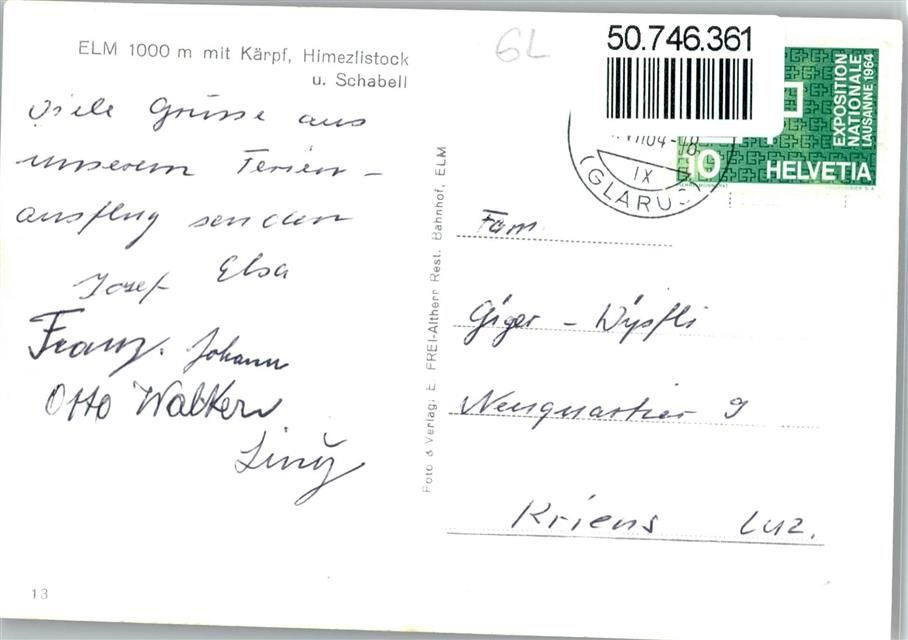 ELM 1000 m mit Kärpf, Himezlistock
u. Schabell
Viele Grüsse aus
unserem Ferien -
ausflug senden
Josef Elsa
Franz. Johann
Otto Walter
Liny
13
Foto & Verlag: E. FREI-Altherr Rest. Bahnhof, ELM
6L
50.746.361
EXPOSITION
NATIONALE
LAUSANNE 1964
10
HELVETIA
64-18
IX
(GLARUS
Fam.
Giger - Wipfli
Neuquartier 9
Kriens Luz.